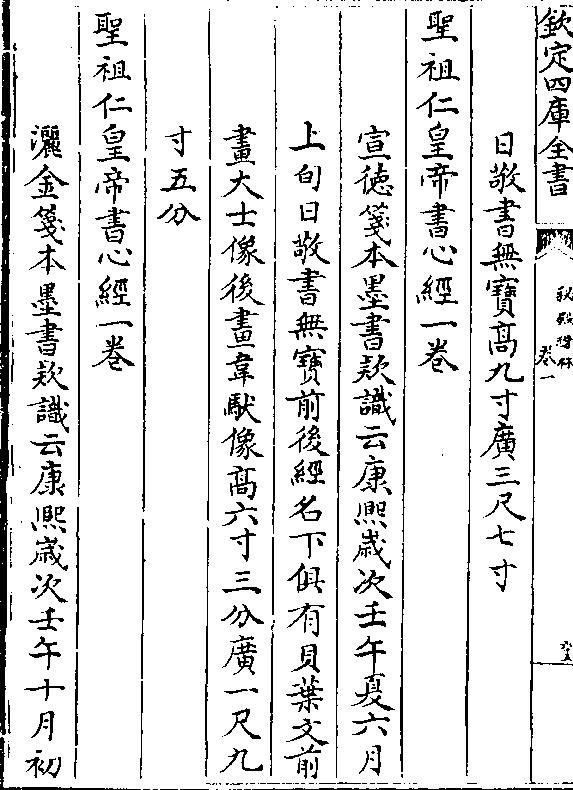 欽定四庫全書
秘殿珠林
卷一
日敬書無寶高九寸廣三尺七寸
聖祖仁皇帝書心經一卷
宣徳箋本墨書欵識云康熙歳次壬午夏六月
上旬日敬書無寶前後經名下俱有貝葉文前
畫大士像後畫韋馱像高六寸三分廣一尺九
寸五分
聖祖仁皇帝書心經一卷
灑金箋本墨書欵識云康熙歳次壬午十月初